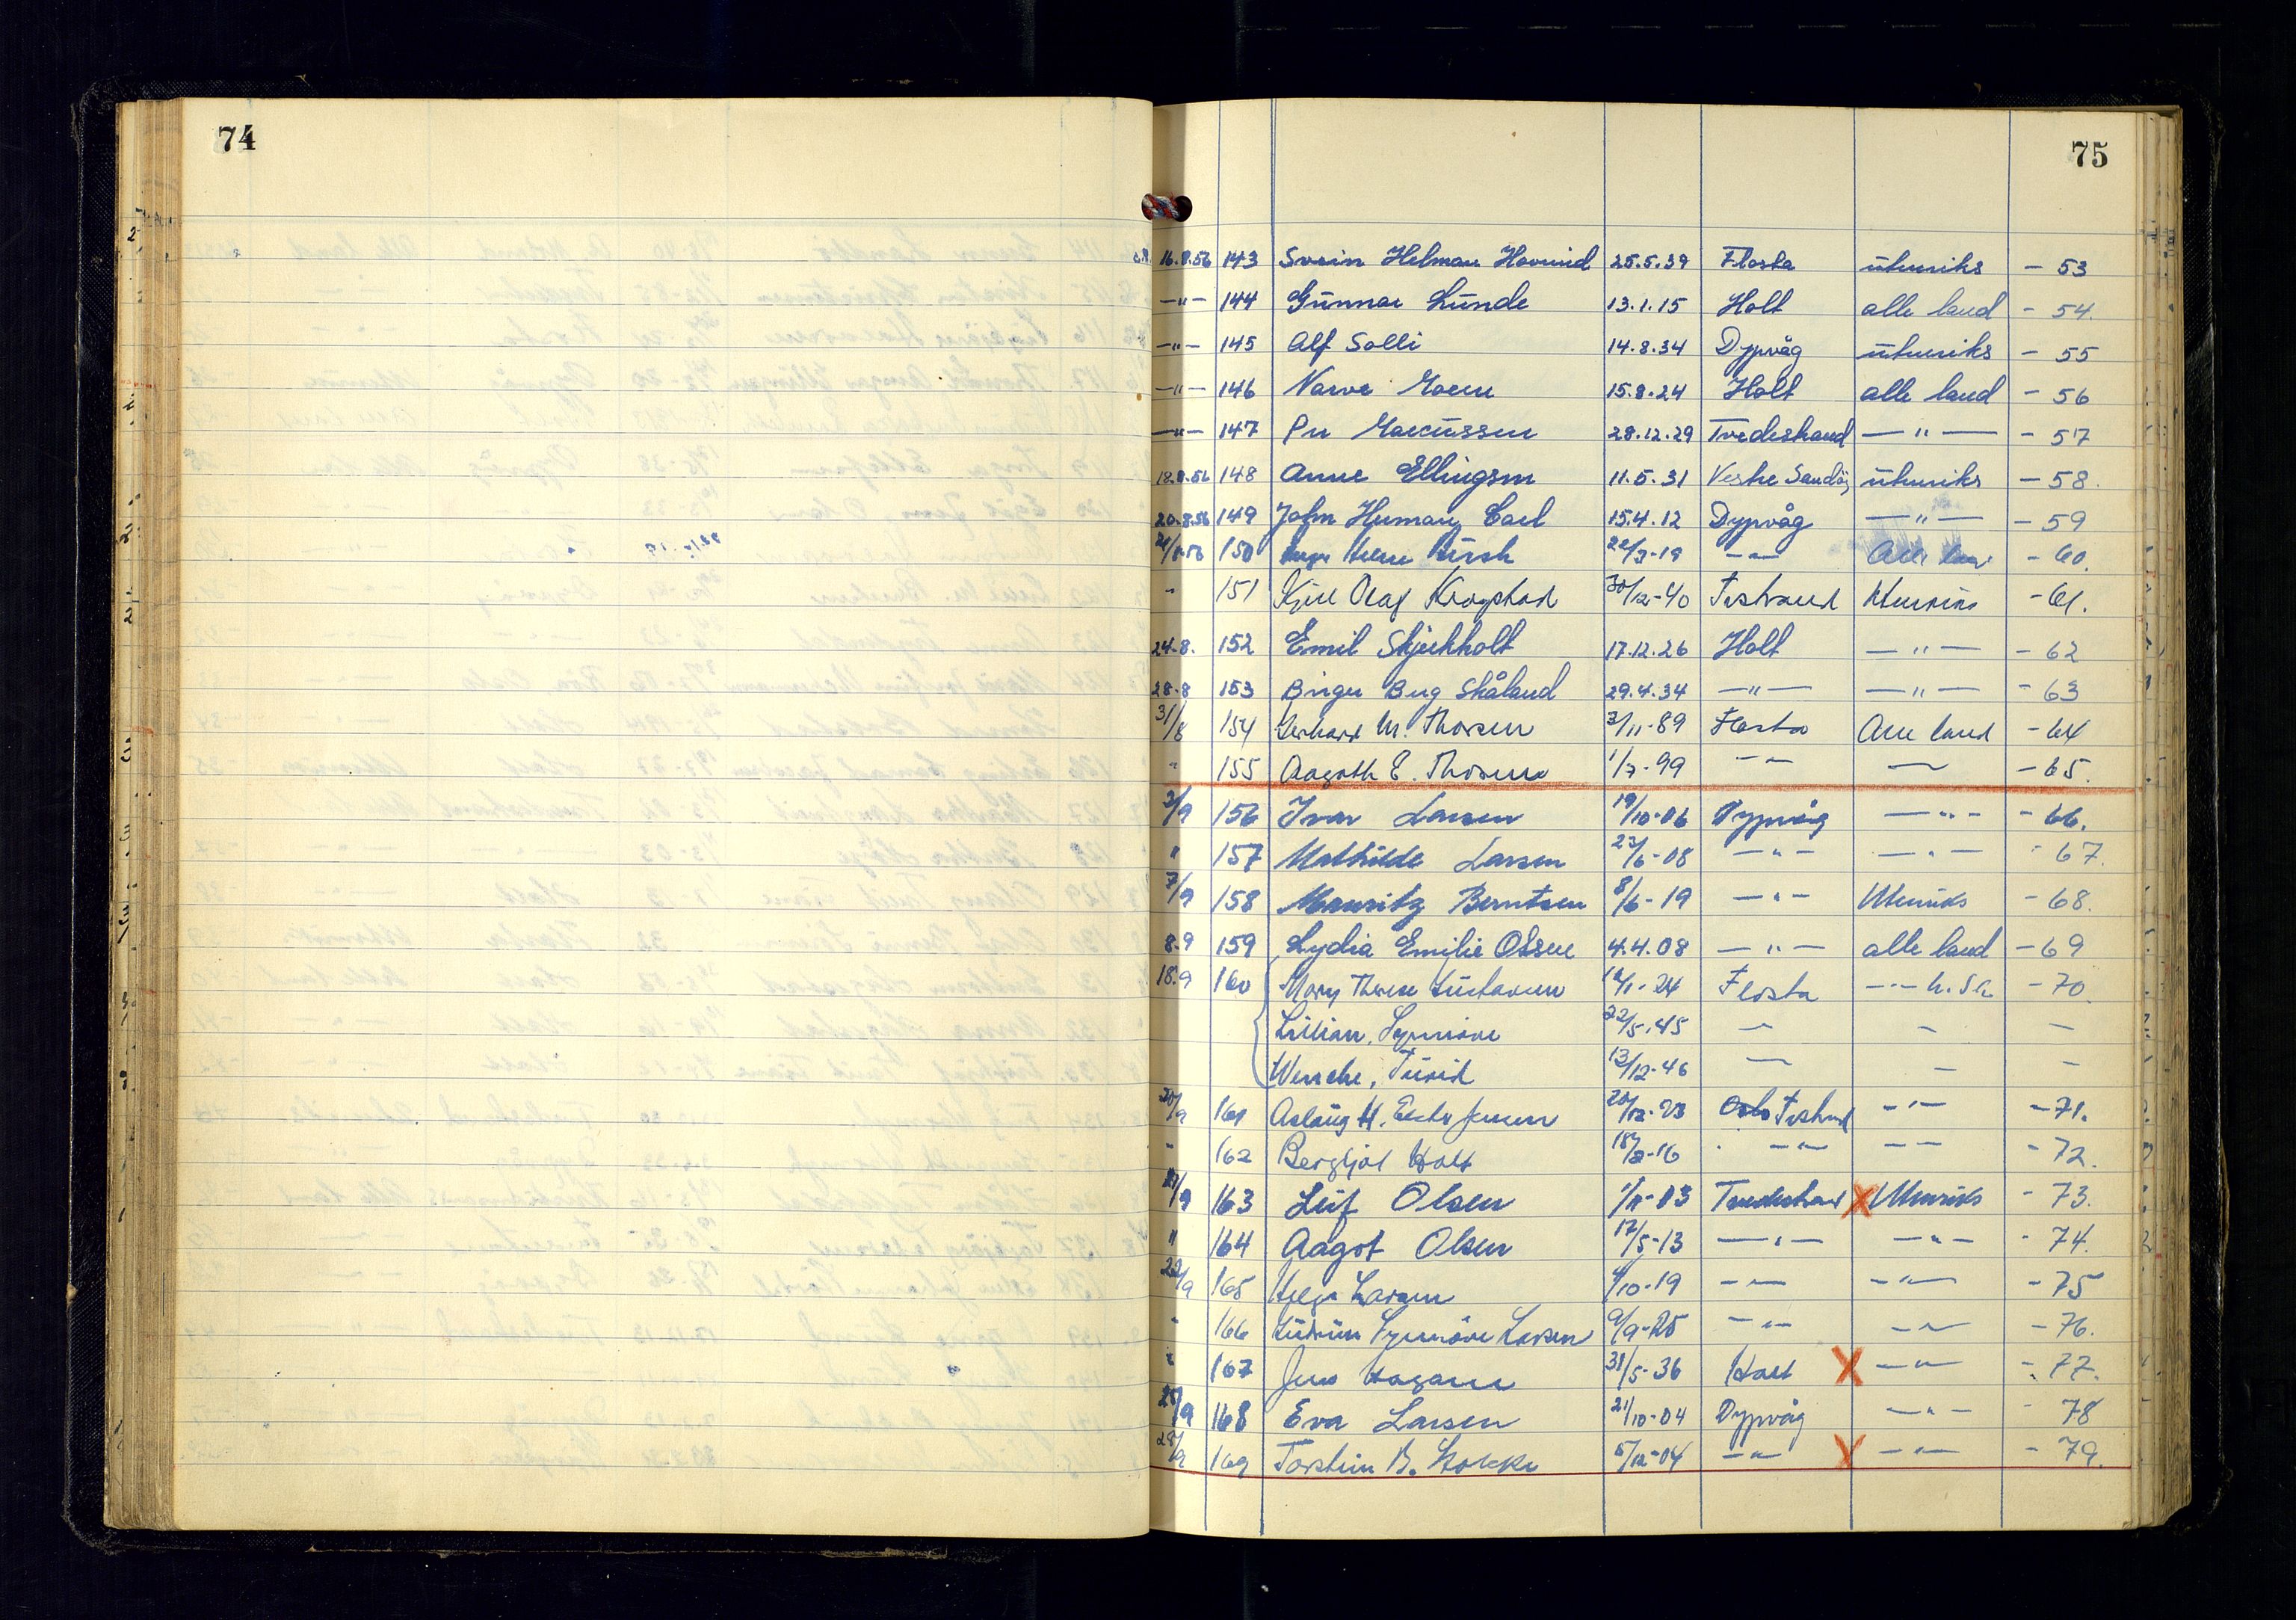 74
75
16.8.56 143 Svein Helman Hovind 25.5.39 Flosta utenriks - 53
-"- 144 Gunnar Lunde 13.1.15 Holt alle land - 54.
-"- 145 Alf Solli 14.8.34 Dypvåg utenriks - 55
-"- 146 Narve Moen 15.8.24 Holt alle land - 56
-"- 147 Per Marcussen 28.12.29 Tvedestrand -"- - 57
18.8.56 148 Anne Ellingsen 11.5.31 Vestre Sandøy utenriks - 58.
20.8.56 149 John Herman Carl 15.4.12 Dypvåg -"- - 59
150 22/3-19 -"- Alle land - 60.
" 151 Kjell Olaf Krogstad 30/12-40 T.strand Utenriks - 61.
24.8. 152 Emil Skjerkholt 17.12.26 Holt -"- - 62
28.8 153 Birger Berg Skåland 29.4.34 -"- -"- - 63
31/8 154 Gerhard M. Thorsen 3/11-89 Flosta Alle land - 64
" 155 Aagoth E. Thorsen 1/7-99 -"- - 65.
3/9 156 Ivar Larsen 19/10-06 Dypvåg -"- - 66.
" 157 Mathilde Larsen 23/6-08 -"- -"- - 67.
7/9 158 Mauritz Berntsen 8/6-19 -"- Utenriks - 68.
8.9 159 Lydia Emilie Olsen 4.4.08 -"- alle land - 69
18.9 160 Mary Therese Gustavsen 1-24 Flosta -"- - 70
Lillian, Synnöve 22/5-45 - - -
Wenche, Turid 13/12-46 - - -
20/9 161 Aslaug H. Jensen 20/12-23 Oslo T.strand -"- - 71.
" 162 Bergljot Holt 18/2-16 -"- -"- - 72.
21/9 163 Leif Olsen 1/11-03 Tvedestrand X Utenriks - 73.
" 164 Aagot Olsen 17/5-13 -"- -"- - 74.
22/9 165 Helge Larsen 4/10-19 -"- -"- - 75
" 166 Gudrun Synnöve Larsen 9/9-25 -"- -"- - 76.
" 167 Jens Hagane 31/5-36 Holt X -"- - 77.
25/9 168 Eva Larsen 21/10-04 Dypvåg -"- - 78
28/9 169 Torstein B. Stokke 5/12-04 -"- X -"- - 79.